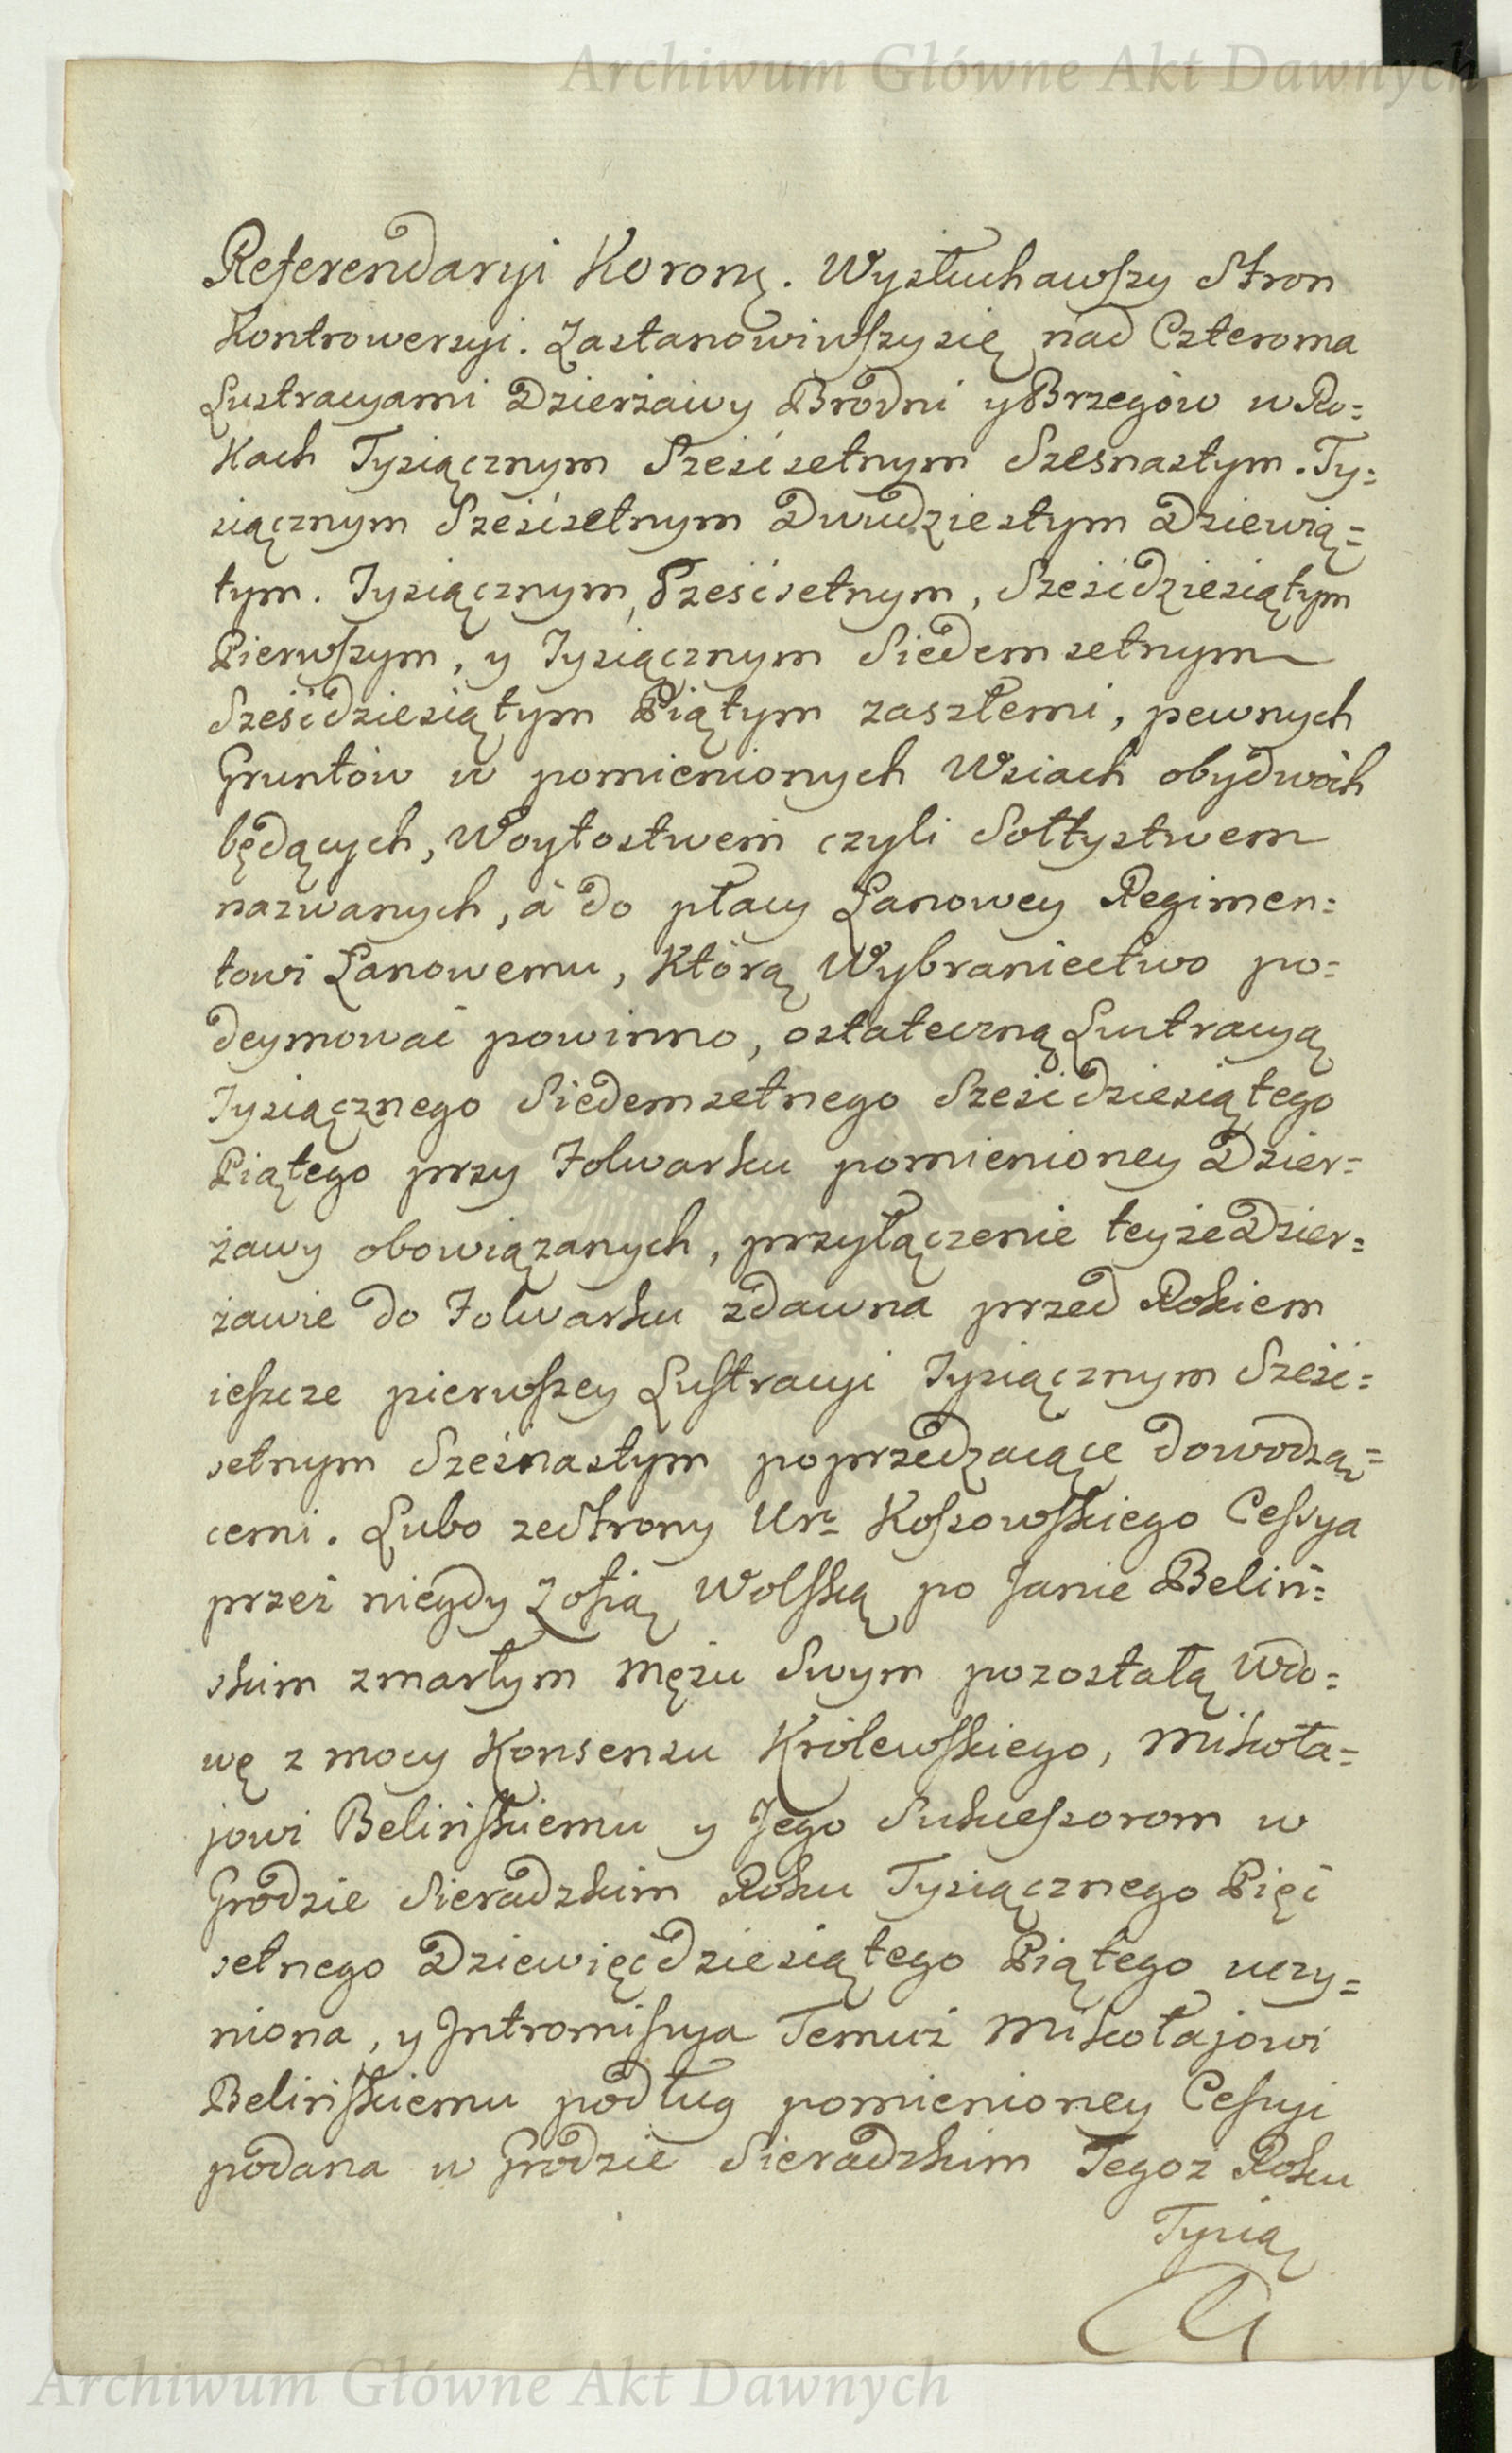 Archiwum Główne Akt Dawnych
Referendaryi Koronę. Wysłuchawszy Stron
Kontrowersyi. Zastanowiwszy się nad Czteroma
Lustracyami Dzierżawy Brodni y Brzegów w Ro=
kach Tysiącznym Sześćsetnym Szesnastym. Ty=
siącznym Sześćsetnym Dwudziestym Dziewią=
tym. Tysiącznym, Sześćsetnym, Sześćdziesiątym
Pierwszym, y Tysiącznym Siedemsetnym
Sześćdziesiątym Piątym zaszłemi, pewnych
Gruntów w pomienionych Wsiach obydwóch
będących, Woytostwem czyli Sołtystwem
nazwanych, à do płacy Łanowey Regimen=
towi Łanowemu, którą Wybraniectwo po=
deymować powinno, ostateczną Lustracyą
Tysiącznego Siedemsetnego Sześćdziesiątego
Piątego przy Folwarku pomienioney Dzier=
żawy obowiązanych, przyłączenie teyże Dzier=
żawie do Folwarku zdawna przed Rokiem
ieszcze pierwszey Lustracyi Tysiącznym Sześć=
setnym Szesnastym poprzedzaiące dowodzą=
cemi. Lubo ze Strony Ur: Kossowskiego Cessya
przez niegdy Zofią Wolską po Janie Beliń=
skim zmarłym Mężu Swym pozostałą Wdo=
wę z mocy Konsensu Królewskiego, Mikoła=
jowi Belińskiemu y Jego Sukcessorom w
Grodzie Sieradzkim Roku Tysiącznego Pięć
setnego Dziewięćdziesiątego Piątego uczy=
niona, y Intromissya Temuż Mikołajowi
Belińskiemu podług pomienioney Cessyi
podana w Grodzie Sieradzkim Tegoż Roku
Tysią
Archiwum Główne Akt Dawnych